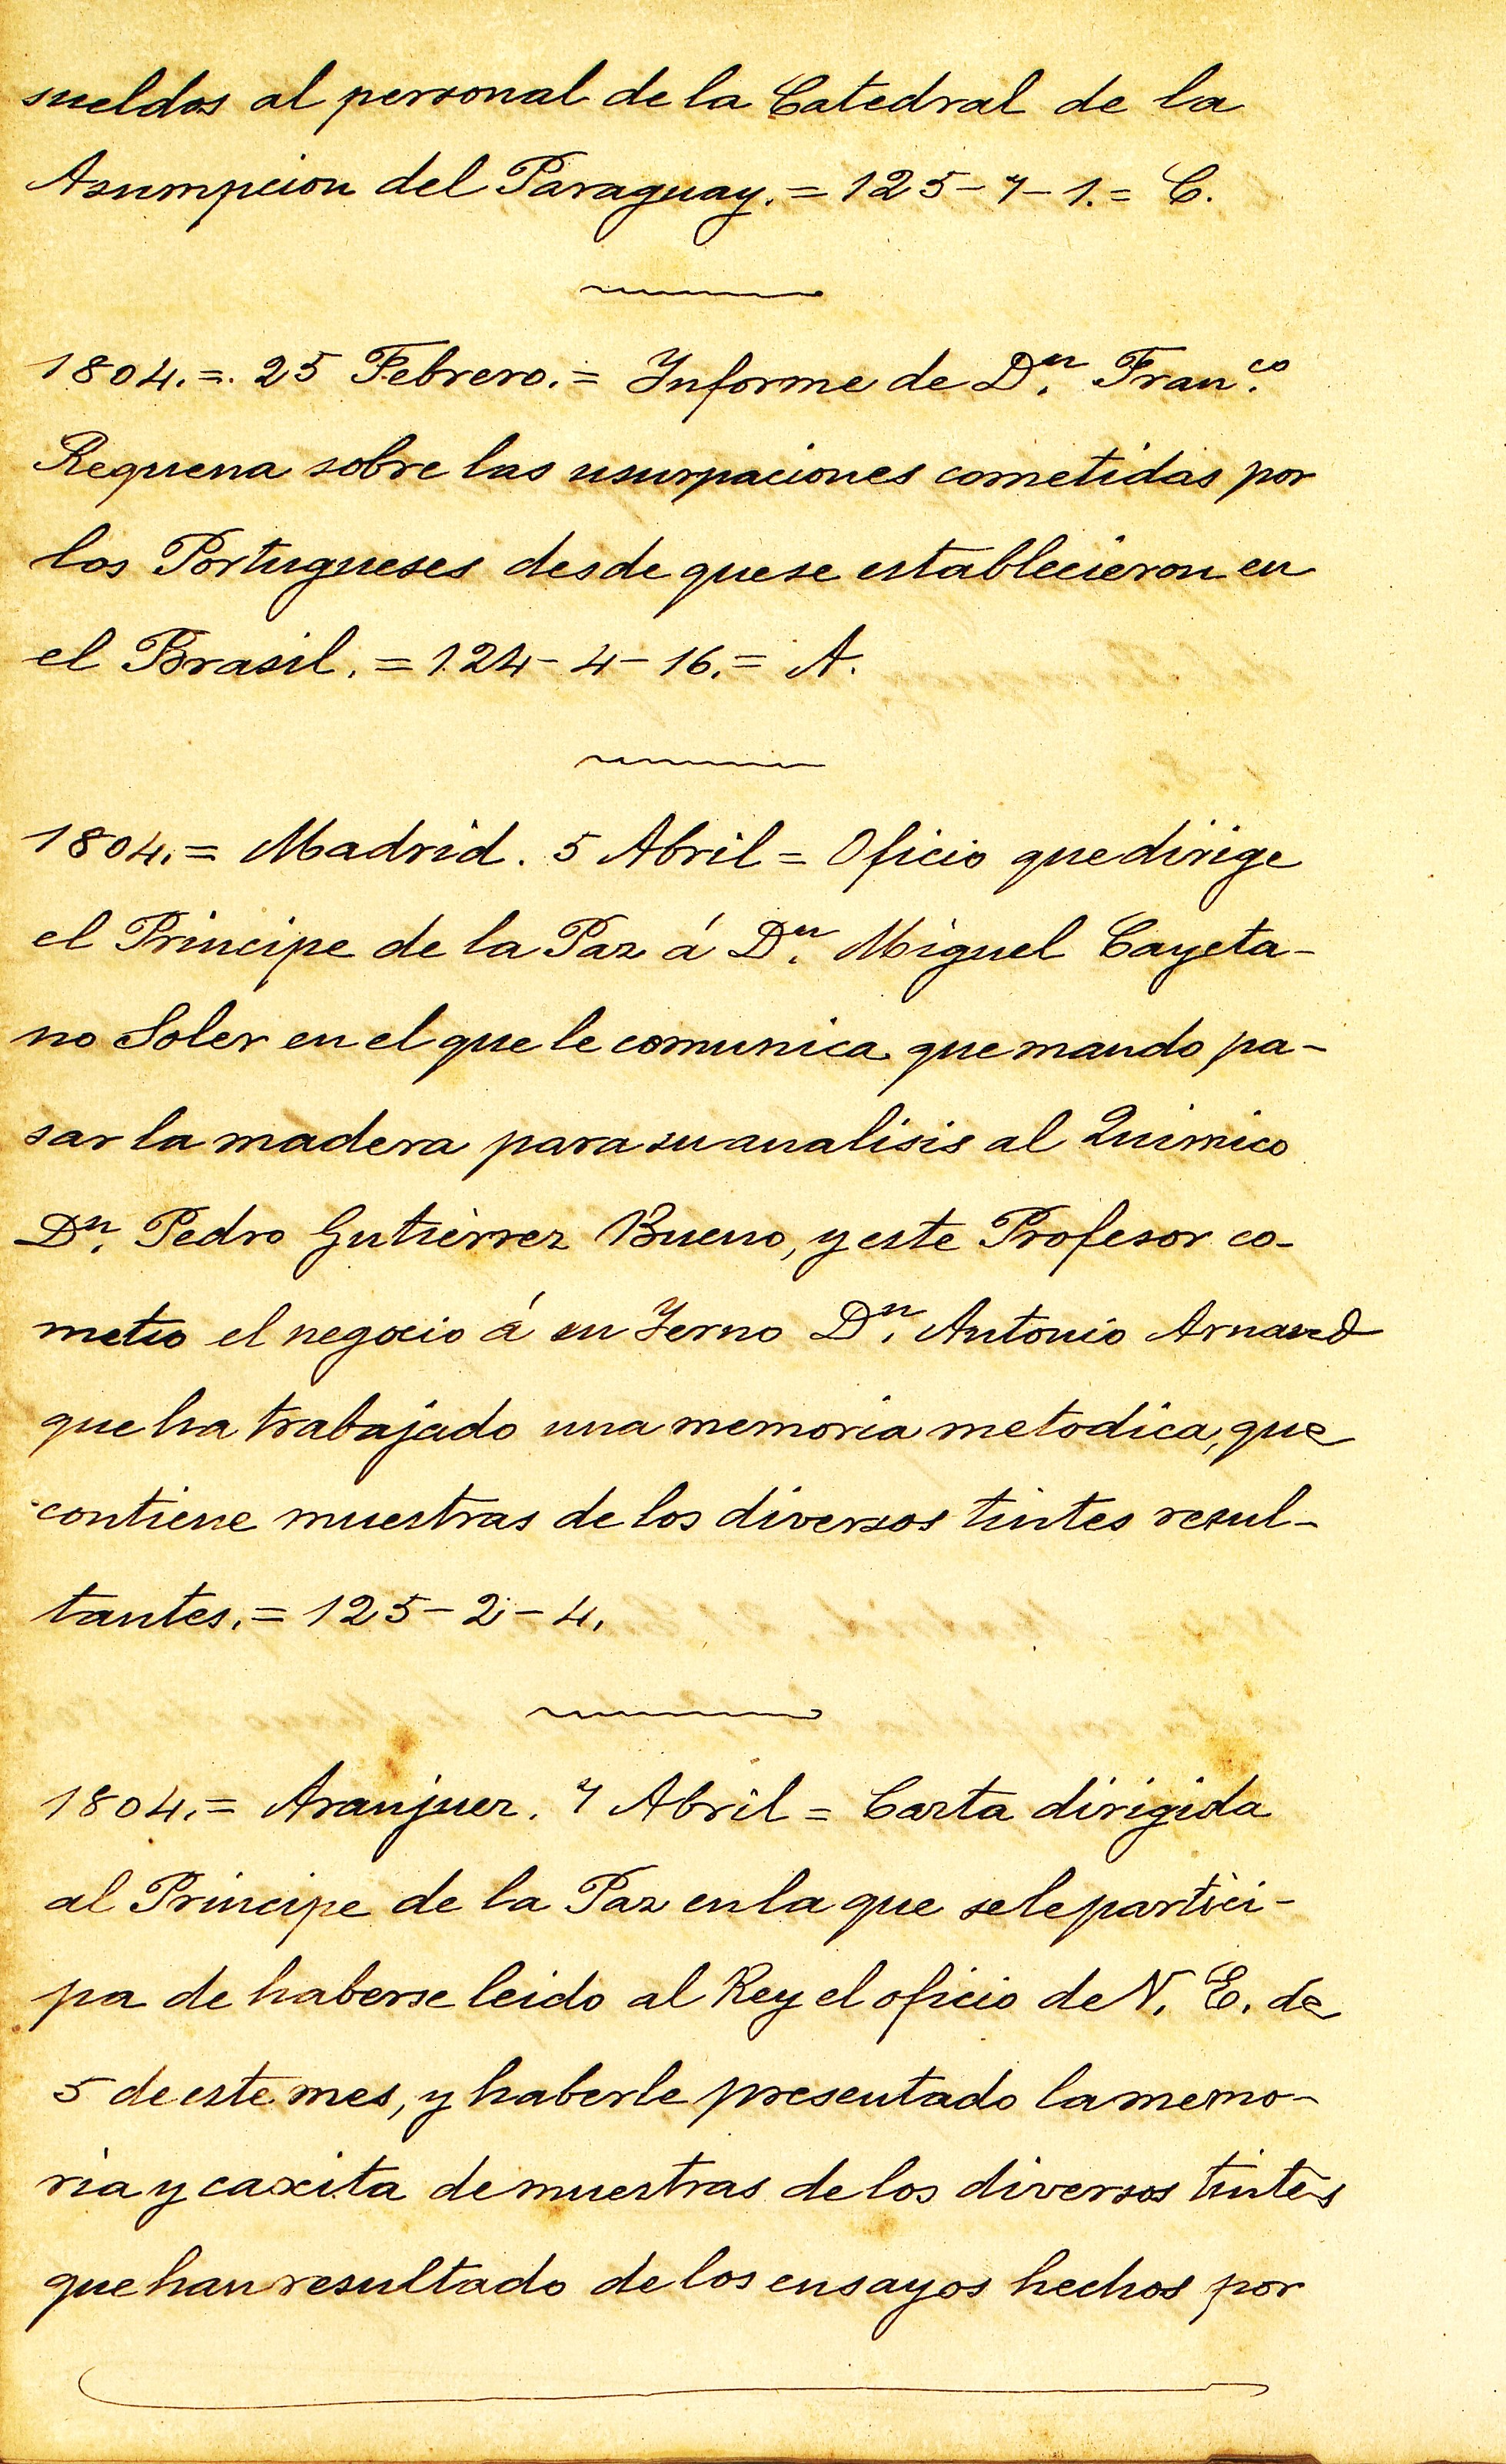 sueldos al personal de la Catedral de la
Asumpcion del Paraguay. = 125-7-1. = C.
1804. = 25 Febrero. = Informe de Dn. Franco.
Requena sobre las usurpaciones cometidas por
los Portugueses desde que se establecieron en
el Brasil. = 124-4-16. = A.
1804. = Madrid. 5 Abril = Oficio que dirige
el Principe de la Paz á Dn. Miguel Cayeta-
no Soler en el que le comunica que mando pa-
sar la madera para su analisis al Quimico
Dn. Pedro Gutierrez Bueno, y este Profesor co-
metio el negocio á su Yerno Dn. Antonio
que ha trabajado una memoria metodica, que
contiene muestras de los diversos tintes resul-
tantes. = 125-2-4.
1804. = Aranjuez. 7 Abril = Carta dirigida
al Principe de la Paz en la que se le partici-
pa de haberse leido al Rey el oficio de V. E. de
5 de este mes, y haberle presentado la memo-
ria y caxita de muestras de los diversos tintes
que han resultado de los ensayos hechos por